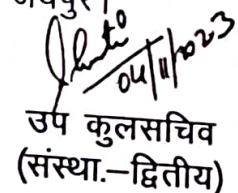 जयपुर।
04/11/2023
उप कुलसचिव
(संस्था.–द्वितीय)